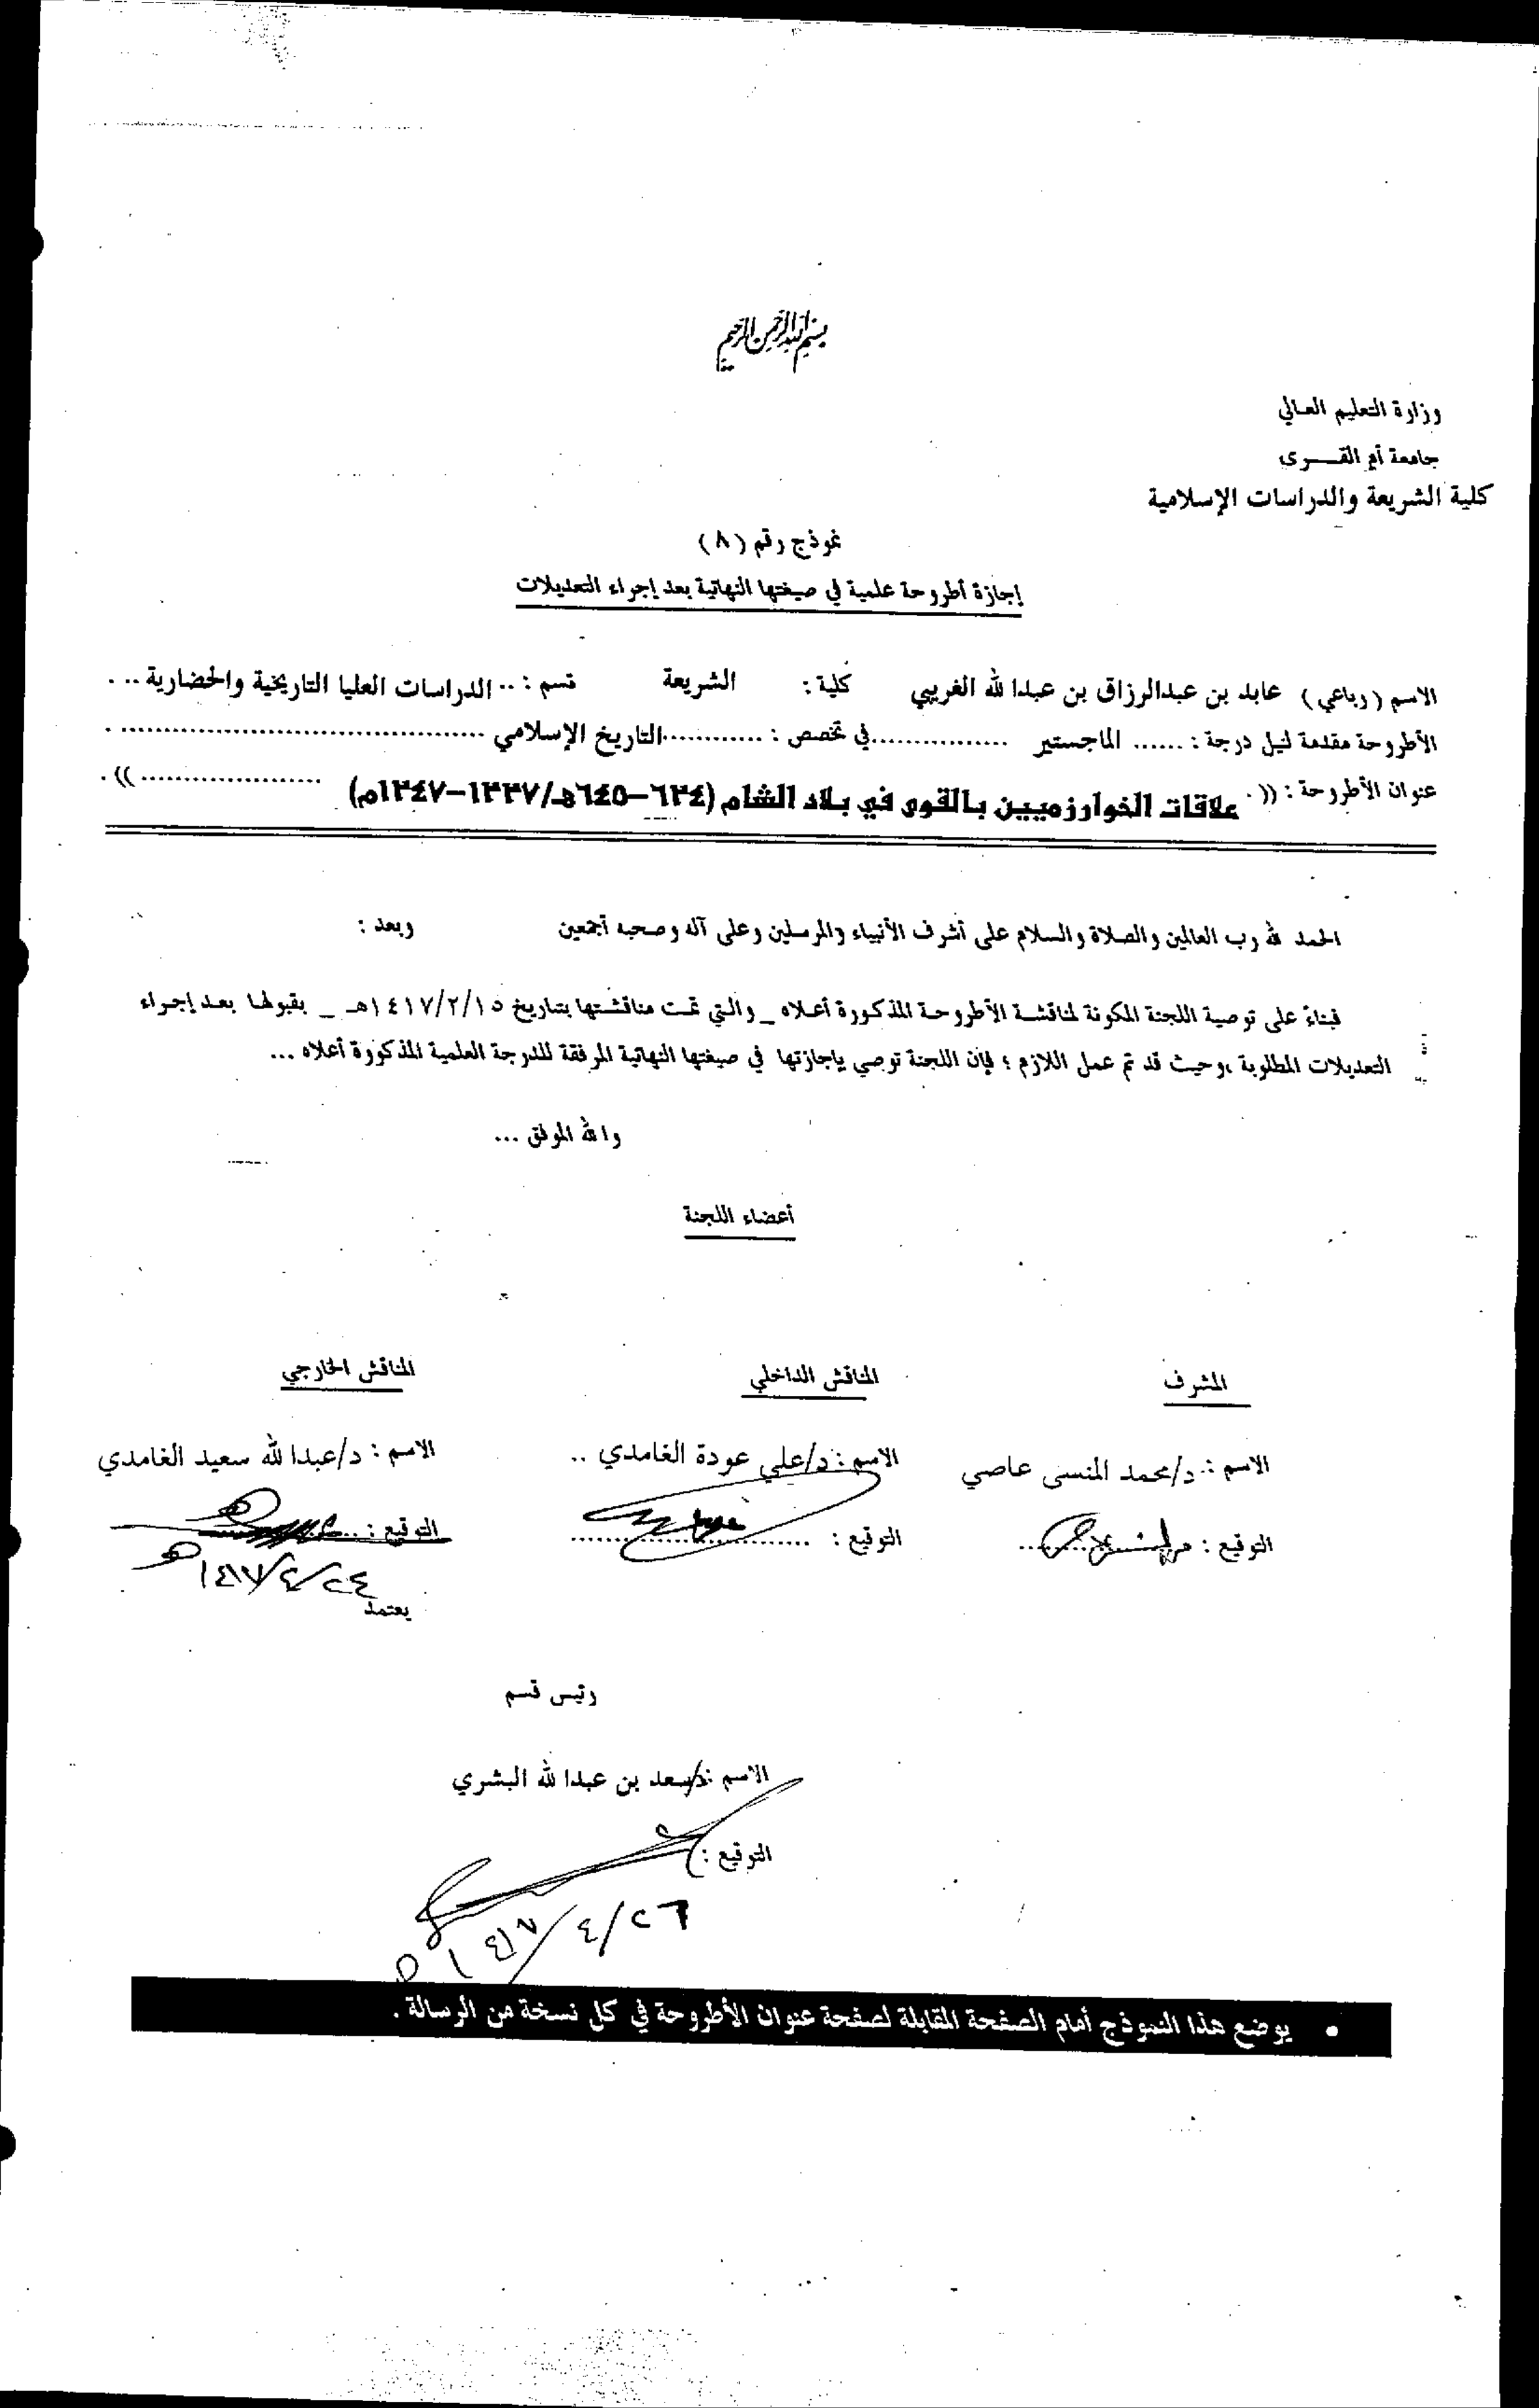 بسم الله الرحمن الرحيم
وزارة التعليم العالي
جامعة أم القـــرى
كلية الشريعة والدراسات الإسلامية
نموذج رقم (٨)
إجازة أطروحة علمية في صيغتها النهائية بعد إجراء التعديلات
الاسم (رباعي) عابد بن عبدالرزاق بن عبدا لله الغريبي كلية : الشريعة قسم : .. الدراسات العليا التاريخية والحضارية ...
الأطروحة مقدمة لنيل درجة : ...... الماجستير ................في تخصص : ............التاريخ الإسلامي ..................................................
عنوان الأطروحة : (( . علاقات الخوارزميين بالقوى في بلاد الشام (٦٣٤-٦٤٥هـ/١٣٣٧-١٣٤٧م) .................... )) .
الحمد لله رب العالمين والصلاة والسلام على أشرف الأنبياء والمرسلين وعلى آله وصحبه أجمعين وبعد :
فبناءً على توصية اللجنة المكونة لمناقشة الأطروحة المذكورة أعلاه _ والتي تمت مناقشتها بتاريخ ١٤١٧/٢/١٥هـ _ بقبولها بعد إجراء
التعديلات المطلوبة ،وحيث قد تم عمل اللازم ؛ فإن اللجنة توصي بإجازتها في صيغتها النهائية المرفقة للدرجة العلمية المذكورة أعلاه ...
والله الموفق ...
أعضاء اللجنة
المشرف المناقش الداخلي المناقش الخارجي
الاسم : د/محمد المنسى عاصي الاسم : د/علي عودة الغامدي .. الاسم : د/عبدا لله سعيد الغامدي
التوقيع : التوقيع : التوقيع :
١٤١٧/٤/٢٤
يعتمد
رئيس قسم
الاسم : د/سعد بن عبدا لله البشري
التوقيع :
١٤١٧/٤/٢٦ هـ
• يوضع هذا النموذج أمام الصفحة المقابلة لصفحة عنوان الأطروحة في كل نسخة من الرسالة .